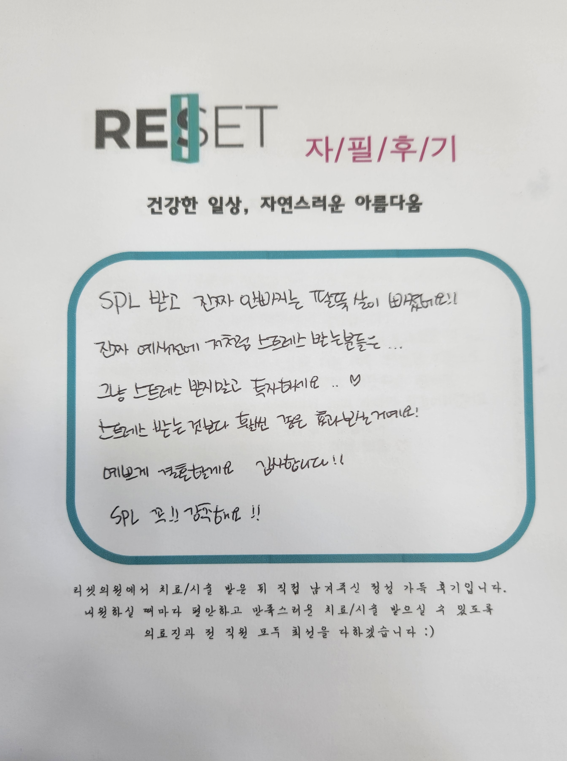 RESET
자/필/후/기
건강한 일상, 자연스러운 아름다움
SPL 받고 진짜 안빠지는 팔뚝살이 빠졌네요!!
진짜 예식전에 저처럼 스트레스 받는분들은 ...
그냥 스트레스 받지말고 투자하세요 .. ♡
스트레스 받는 것보다 훨씬 좋은 효과보실거예요!
예쁘게 결혼할게요 감사합니다!!
SPL 꼭!! 강추해요 !!
리셋의원에서 치료/시술 받은 뒤 직접 남겨주신 정성 가득 후기입니다.
내원하실 때마다 편안하고 만족스러운 치료/시술 받으실 수 있도록
의료진과 전 직원 모두 최선을 다하겠습니다 :)